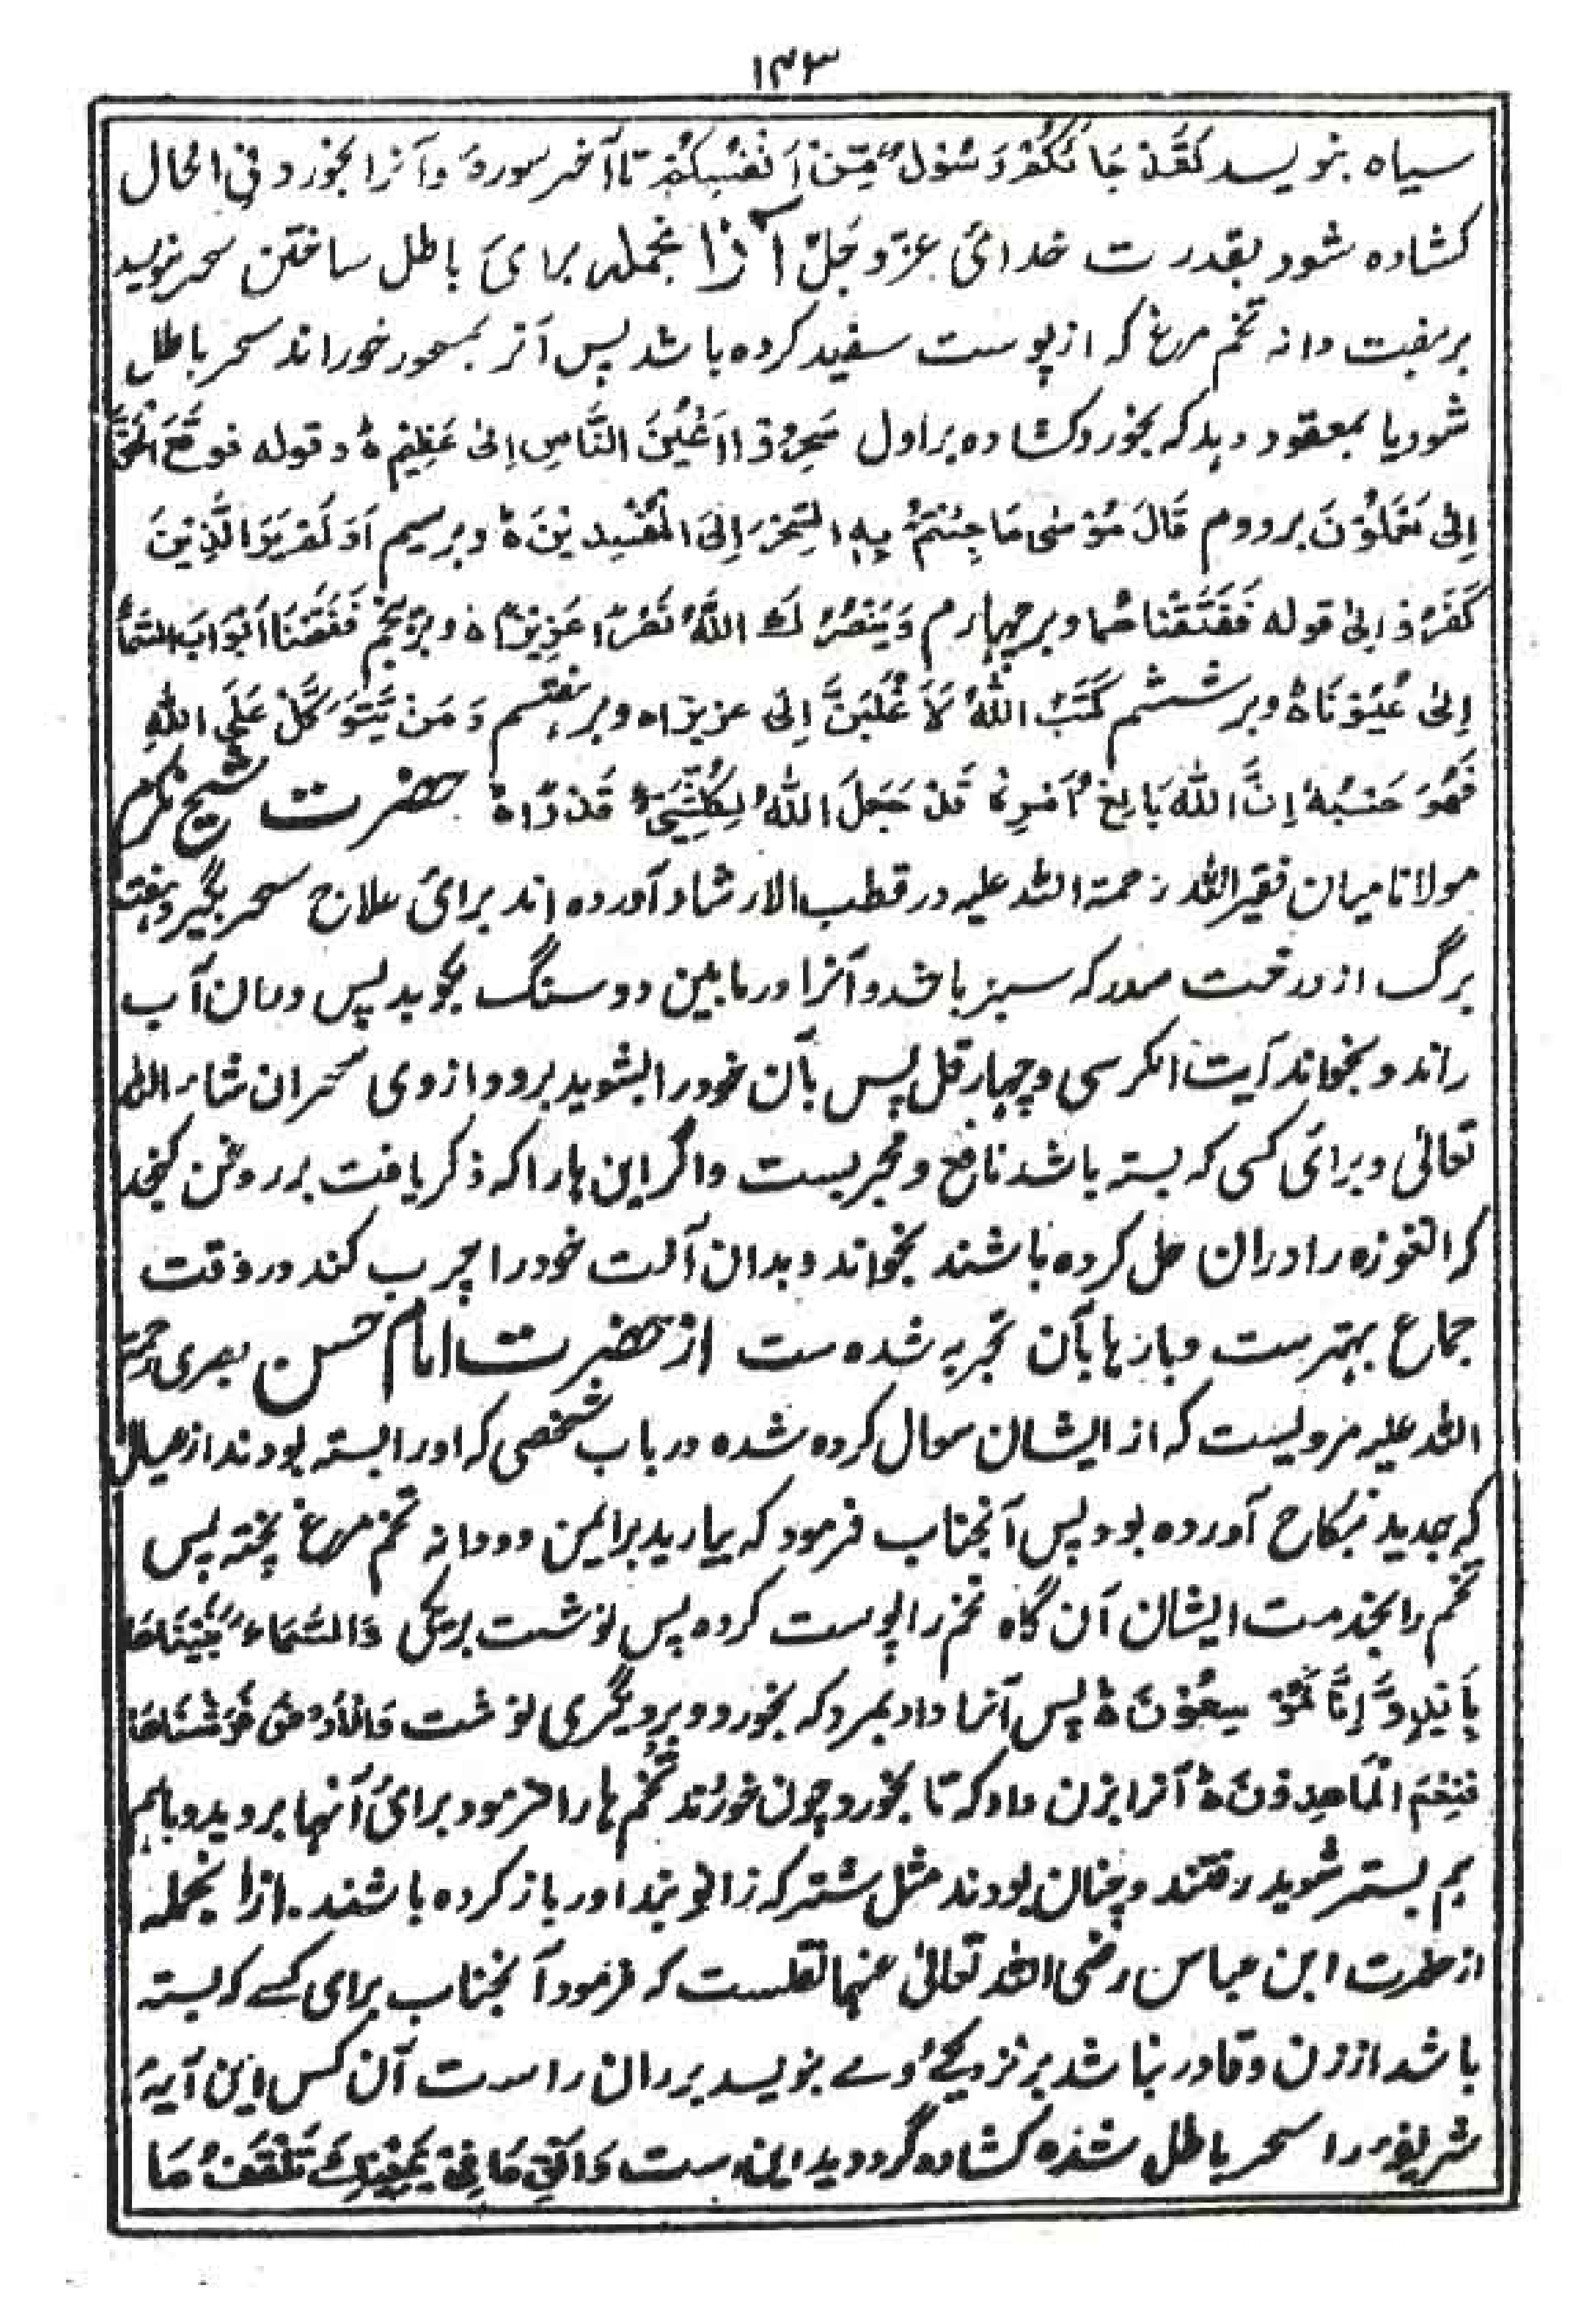 ۱۴۳
سیاہ بنویسد لَقَدْ جَائَكُمْ رَسُوْلٌ مِّنْ اَنْفُسِكُمْ تا آخر سورۃ و آنرا بخورد فی الحال
کشادہ شود بقدرت خدائ عزّ و جلّ ازا نجملہ برائ باطل ساختن سحر بنویسد
بر ہفت دانہ تخم مرغ کہ از پوست سفید کردہ باشد پس آنر بمسحور خوراند سحر باطل
شود یا بمعقود دہد کہ بخورد کشادہ براول سَحَرُوْا اَعْيُنَ النَّاسِ اِلىٰ عَظِيْمٍ ہ و قوله فَوَقَعَ الْحَقُّ
اِلىٰ يَعْمَلُوْنَ بر دوم قَالَ مُوْسٰى مَا جِئْتُمْ بِهِ السِّحْرَ اِلىَ الْمُفْسِدِيْنَ ہ و بر سیم اَوَلَمْ يَرَوَ الَّذِيْنَ
كَفَرُوْ اِلىٰ قوله فَفَتَقْنَاهُمَا و بر چہارم وَيَنْصُرُكَ اللّٰهُ نَصْرًا عَزِيْزًا ہ و بر پنجم فَفَتَحْنَا اَبْوَابَ السَّمَاءِ
اِلىٰ عُيُوْنًا ہ و بر ششم كَتَبَ اللّٰهُ لَاَغْلَبَنَّ اِلىٰ عزیزا ہ و بر ہفتم وَمَنْ يَّتَوَكَّلْ عَلَى اللّٰهِ
فَهُوَ حَسْبُهٗ اِنَّ اللّٰهَ بَالِغُ اَمْرِهٖ قَدْ جَعَلَ اللّٰهُ لِكُلِّ شَيْءٍ قَدْرًا ہ حضرت شیخ مکرم
مولانا میان فقیر اللہ رحمۃ اللہ علیہ در قطب الارشاد آوردہ اند برائ علاج سحر بگیرد ہفت
برگ از درخت سدر کہ سبز باشد و آنرا در مابین دو سنگ بکوبد پس دران آب
راند و بخواند آیت الکرسی و چہار قل پس بآن خود را بشوید برود از وی سحر ان شاء اللہ
تعالی و برائ کسی کہ بستہ باشد نافع و مجربست و اگر این ہا را کہ ذکر یافت بر روغن کنجد
کہ انغوزہ را دران حل کردہ باشند بخواند و بدان آلت خود را چرب کند در وقت
جماع بہتر ست و بارہا بآن تجربہ شدہ ست از حضرت امام حسن بصری رحمۃ
اللہ علیہ مرویست کہ از ایشان سوال کردہ شدہ در باب شخصی کہ او را بستہ بودند از عیالش
کہ جدید نبکاح آوردہ بود پس آنجناب فرمود کہ بیارید برایمن دو دانہ تخم مرغ پختہ پس
تخم را بخدمت ایشان آن گاہ تخم را پوست کردہ پس نوشت بر یکی وَالسَّمَاءَ بَنَيْنَاهَا
بِاَيْدٍ وَّاِنَّا لَمُوْسِعُوْنَ ہ پس آنرا داد بمرد کہ بخورد و بر دیگری نوشت وَالْاَرْضَ فَرَشْنَاهَا
فَنِعْمَ الْمَاهِدُوْنَ ہ آنرا بزن داد کہ تا بخورد چون خوردند تخم ہا را فرمود برائ آنہا بروید و باہم
ہم بستر شوید رفتند و چنان بودند مثل شتر کہ زانو بند او ر باز کردہ باشند۔ ازا نجملہ
از حضرت ابن عباس رضی اللہ تعالیٰ عنہما نقلست کہ فرمود آنجناب برای کسے کہ بستہ
باشد از زن و قادر نباشد بر نزدیکیٔ وے بنویسد بر ران راست آن کس این آیۂ
شریفہ را سحر باطل شدہ کشادہ گردد بد این ست وَاَلْقِ مَا فِيْ يَمِيْنِكَ تَلْقَفْ مَا